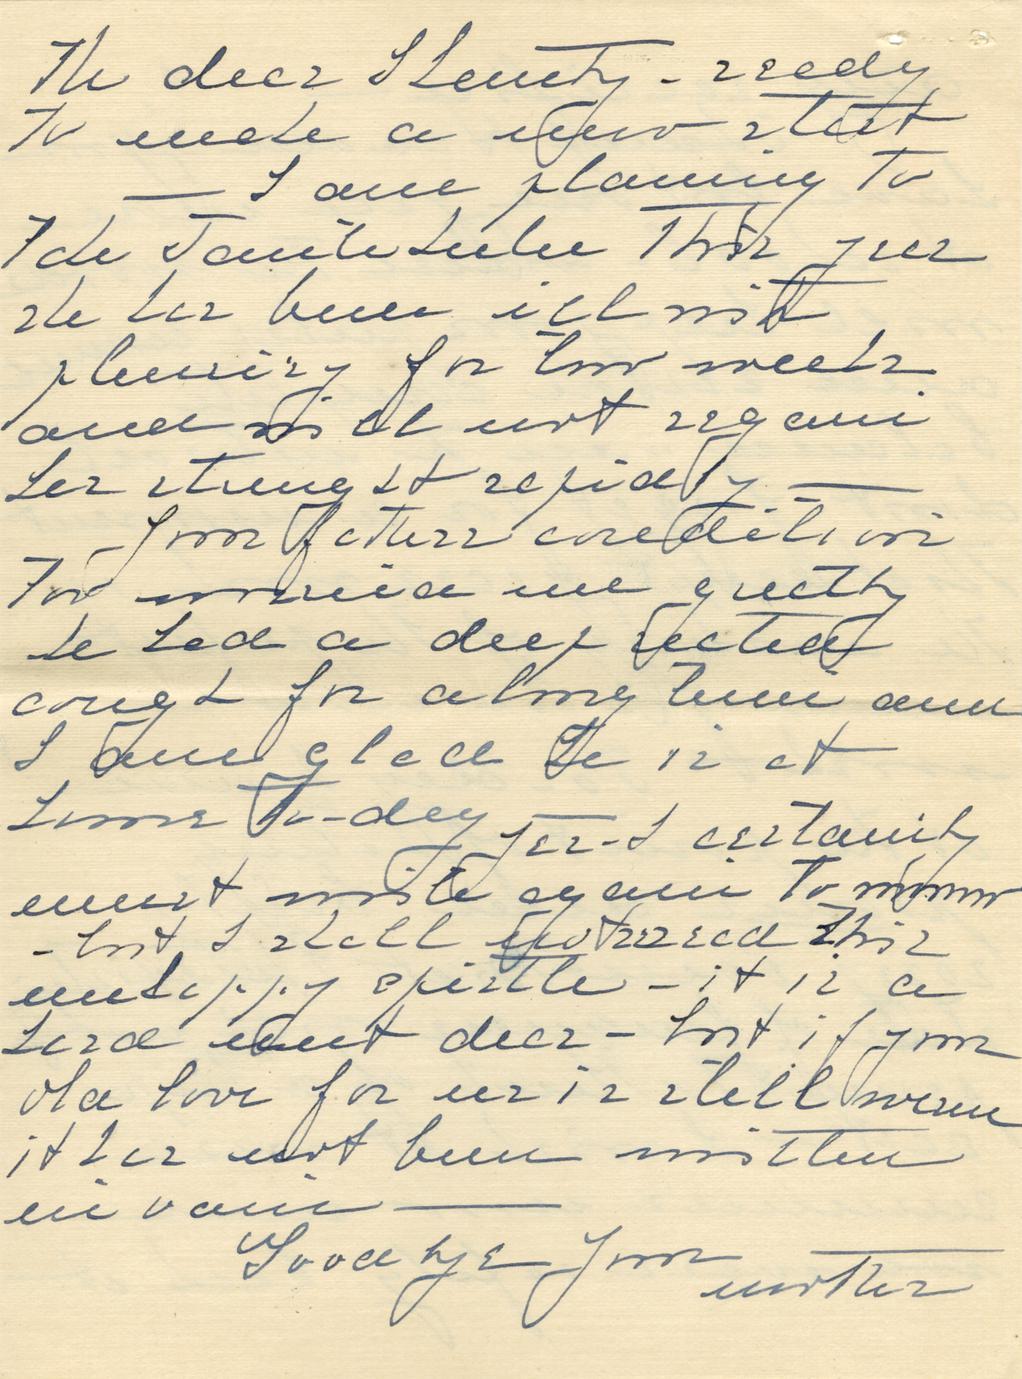 dear - ready
to make a new start
— I am planning to
this year
she has been ill with
pleurisy for two weeks
and will not regain
her strength rapidly —
Your fathers condition
too worries me greatly
he had a deep seated
cough for a long time and
I am glad he is at
home to-day
Yes - I certainly
must write again tomorrow
- but I shall not reread this
unhappy epistle - it is a
hard hunt dear - but if your
old love for us is still warm
it has not been written
in vain —
Goodbye Your
mother